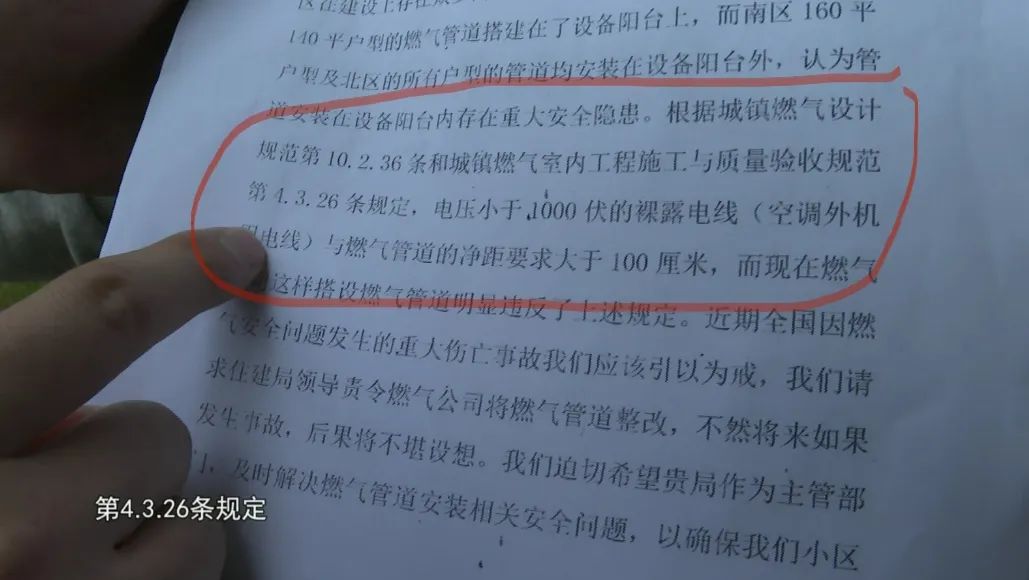 区在建设上存在
140平户型的燃气管道搭建在了设备阳台上，而南区160平
户型及北区的所有户型的管道均安装在设备阳台外，认为管
道安装在设备阳台内存在重大安全隐患。根据城镇燃气设计
规范第10.2.36条和城镇燃气室内工程施工与质量验收规范
第4.3.26条规定，电压小于1000伏的裸露电线（空调外机
电线）与燃气管道的净距要求大于100厘米，而现在燃气
这样搭设燃气管道明显违反了上述规定。近期全国因燃
气安全问题发生的重大伤亡事故我们应该引以为戒，我们请
求住建局领导责令燃气公司将燃气管道整改，不然将来如果
发生事故，后果将不堪设想。我们迫切希望贵局作为主管部
门，及时解决燃气管道安装相关安全问题，以确保我们小区
第4.3.26条规定